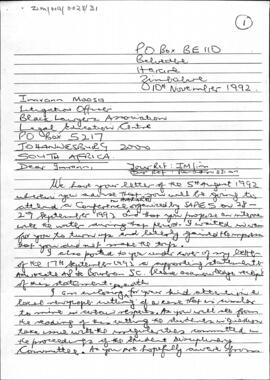 ZIM/019/0028/31
1
PO Box BE 110
Belvedere
Harare
Zimbabwe
10th November 1992
Imraan Moosa
Litigation Officer
Black Lawyers Association
Legal Education Centre
PO BOX 5217
JOHANNESBURG 2000
SOUTH AFRICA
Dear Imraan, Your Ref: IM/
We have your letter of the 5th August 1992
wherein you that you will be going to
attend a Conference organised by SAPES on 28-
29 September 1992 and how you propose to
with the writer during that period. I waited
for you to show up and lately gained the impression
that you did not make the trip.
I also posted to you under cover of my letter
of the 17th September 1992 a supporting
to . Please acknowledge receipt
of this statement
I am enclosing for your kind attention a
local newspaper cutting of a case that is similar
to mine in certain respects. As you will see from
the reading of this cutting the students
take issue with the irregularities committed in
the proceedings of the Student Disciplinary
Committee. As you are hopefully aware from